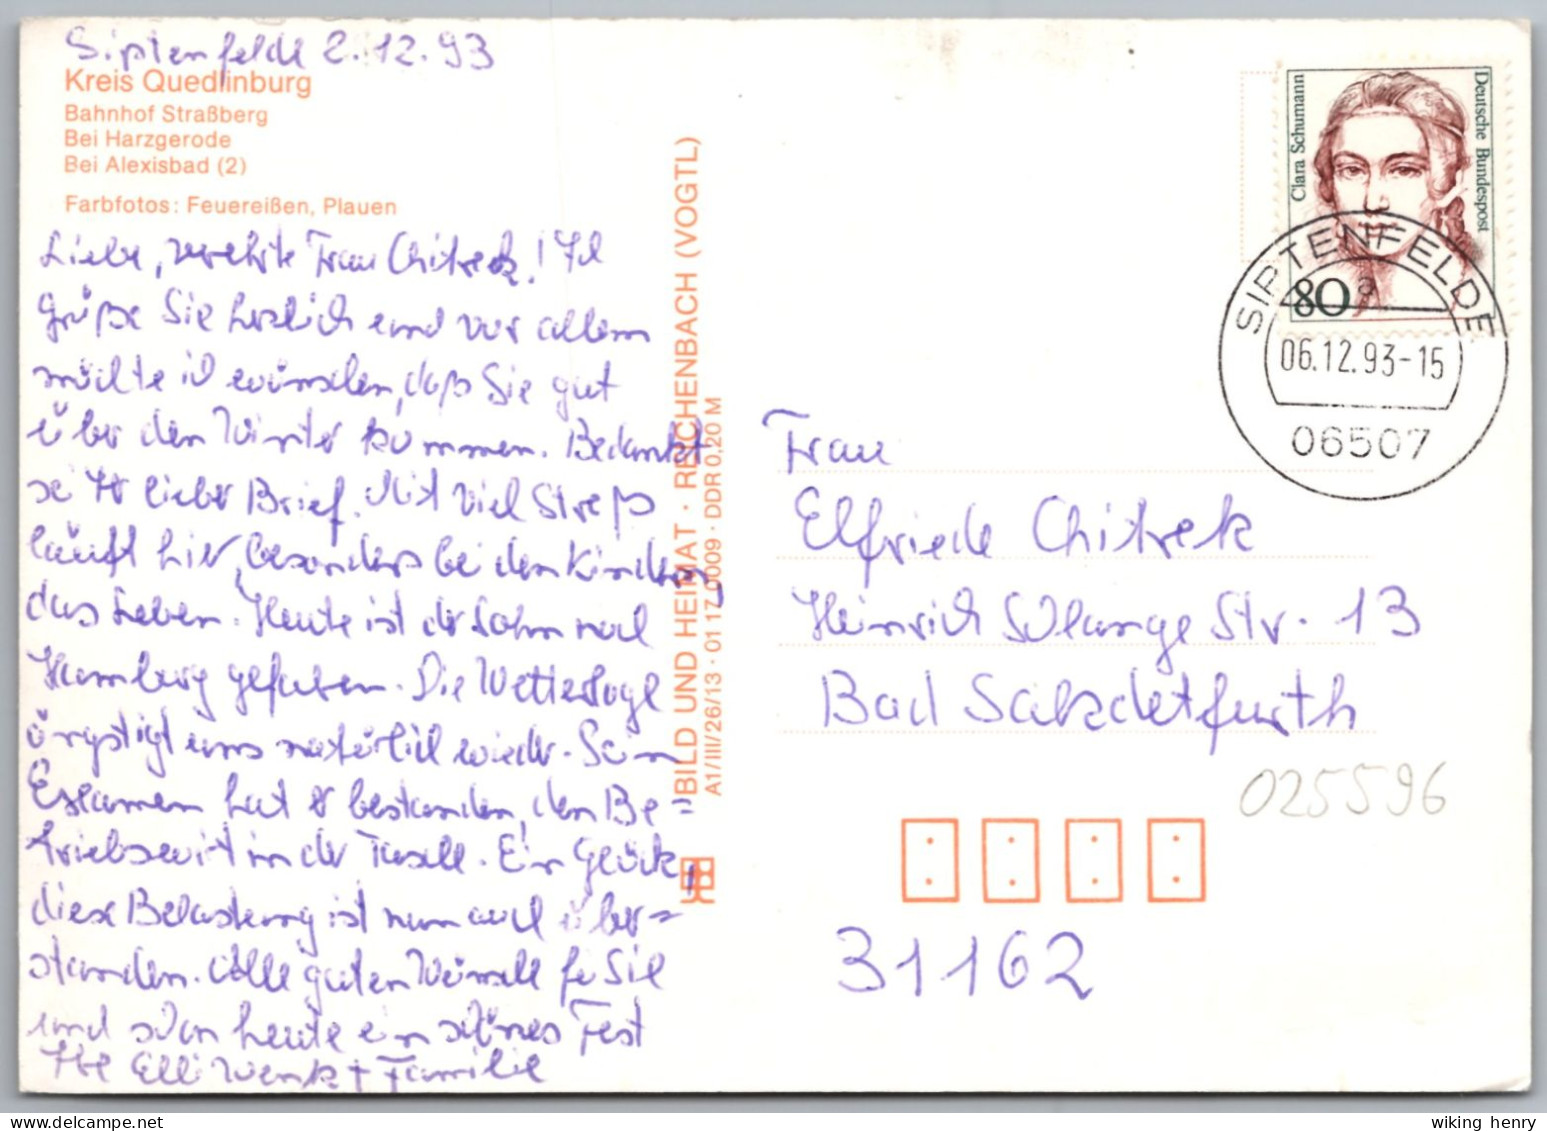 Siptenfelde 2.12.93
Kreis Quedlinburg
Bahnhof Straßberg
Bei Harzgerode
Bei Alexisbad (2)
Farbfotos: Feuereißen, Plauen
Liebe, verehrte Frau Chitrek! Ich
grüße Sie herzlich und vor allem
möchte ich wünschen, daß Sie gut
über den Winter kommen. Bedankt
sei Ihr lieber Brief. Mit viel Streß
läuft hier, besonders bei den Kindern,
das Leben. Heute ist der Sohn nach
Hamburg gefahren. Die Wetterlage
ängstigt uns natürlich wieder. Sein
Examen hat er bestanden, den Be=
triebswirt in der Tasche. Ein Glück,
diese Belastung ist nun auch über=
standen. Alle guten Wünsche für Sie
und schon heute ein schönes Fest
Ihre Elli Wenk + Familie
BILD UND HEIMAT · REICHENBACH (VOGTL)
A1/III/26/13 · 01 17 0009 · DDR 0,20 M
Clara Schumann
Deutsche Bundespost
80
SIPTENFELDE
a
06.12.93-15
06507
Frau
Elfriede Chitrek
Heinrich Schlange Str. 13
Bad Salzdetfurth
025596
31162
wiking henry